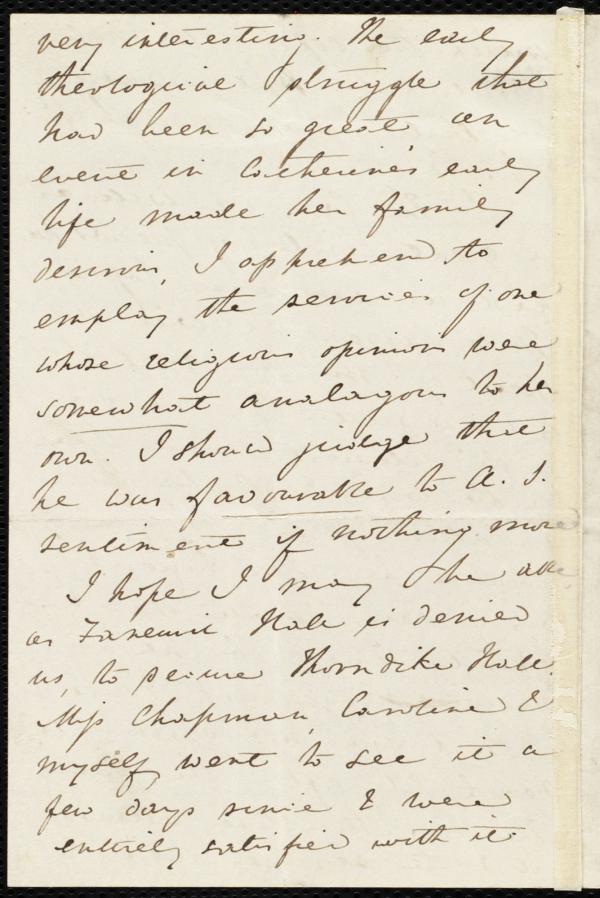 very interesting. The early
theological struggle that
had been so great an
event in Catherine's early
life made her family
desirous, I apprehend to
employ the services of one
whose religious opinions were
somewhat analagous to her
own. I should judge that
he was favourable to A. S.
sentiment if nothing more
I hope I may be able,
as Faneuil Hall is denied
us, to secure Thorndike Hall.
Miss Chapman, Caroline &
myself went to see it a
few days since & were
entirely satisfied with it.